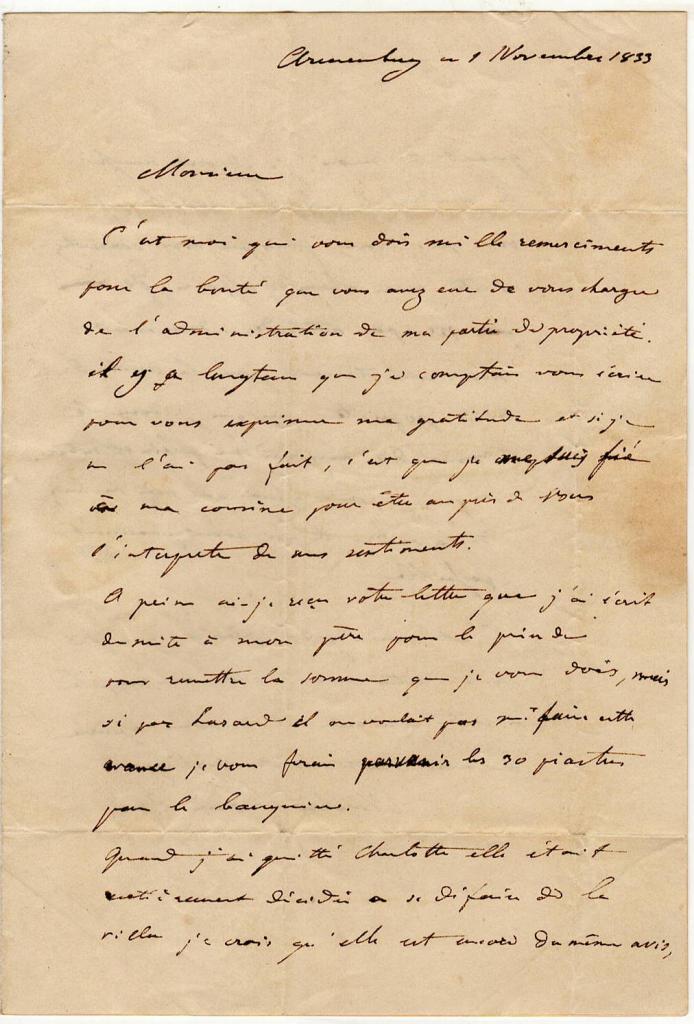 Arenenberg ce 9 Novembre 1833
Monsieur
C'est moi qui vous dois mille remerciments
pour la bonté que vous avez eue de vous charger
de l'administration de ma partie de propriété.
il y a longtems que je comptais vous écrire
pour vous exprimer ma gratitude et si je
ne l'ai pas fait, c'est que je me suis fié
à ma cousine pour être auprès de vous
l'interprete de mes sentiments.
A peine ai-je reçu votre lettre que j'ai écrit
de suite à mon père pour le prier de
vous remettre la somme que je vous dois, mais
si par hasard il ne voulait pas me faire cette
avance je vous ferais parvenir les 30 piastres
par le banquier.
Quand j'ai quitté Charlotte elle était
entièrement décidée a se défaire de la
villa je crois qu'elle est encore du même avis,